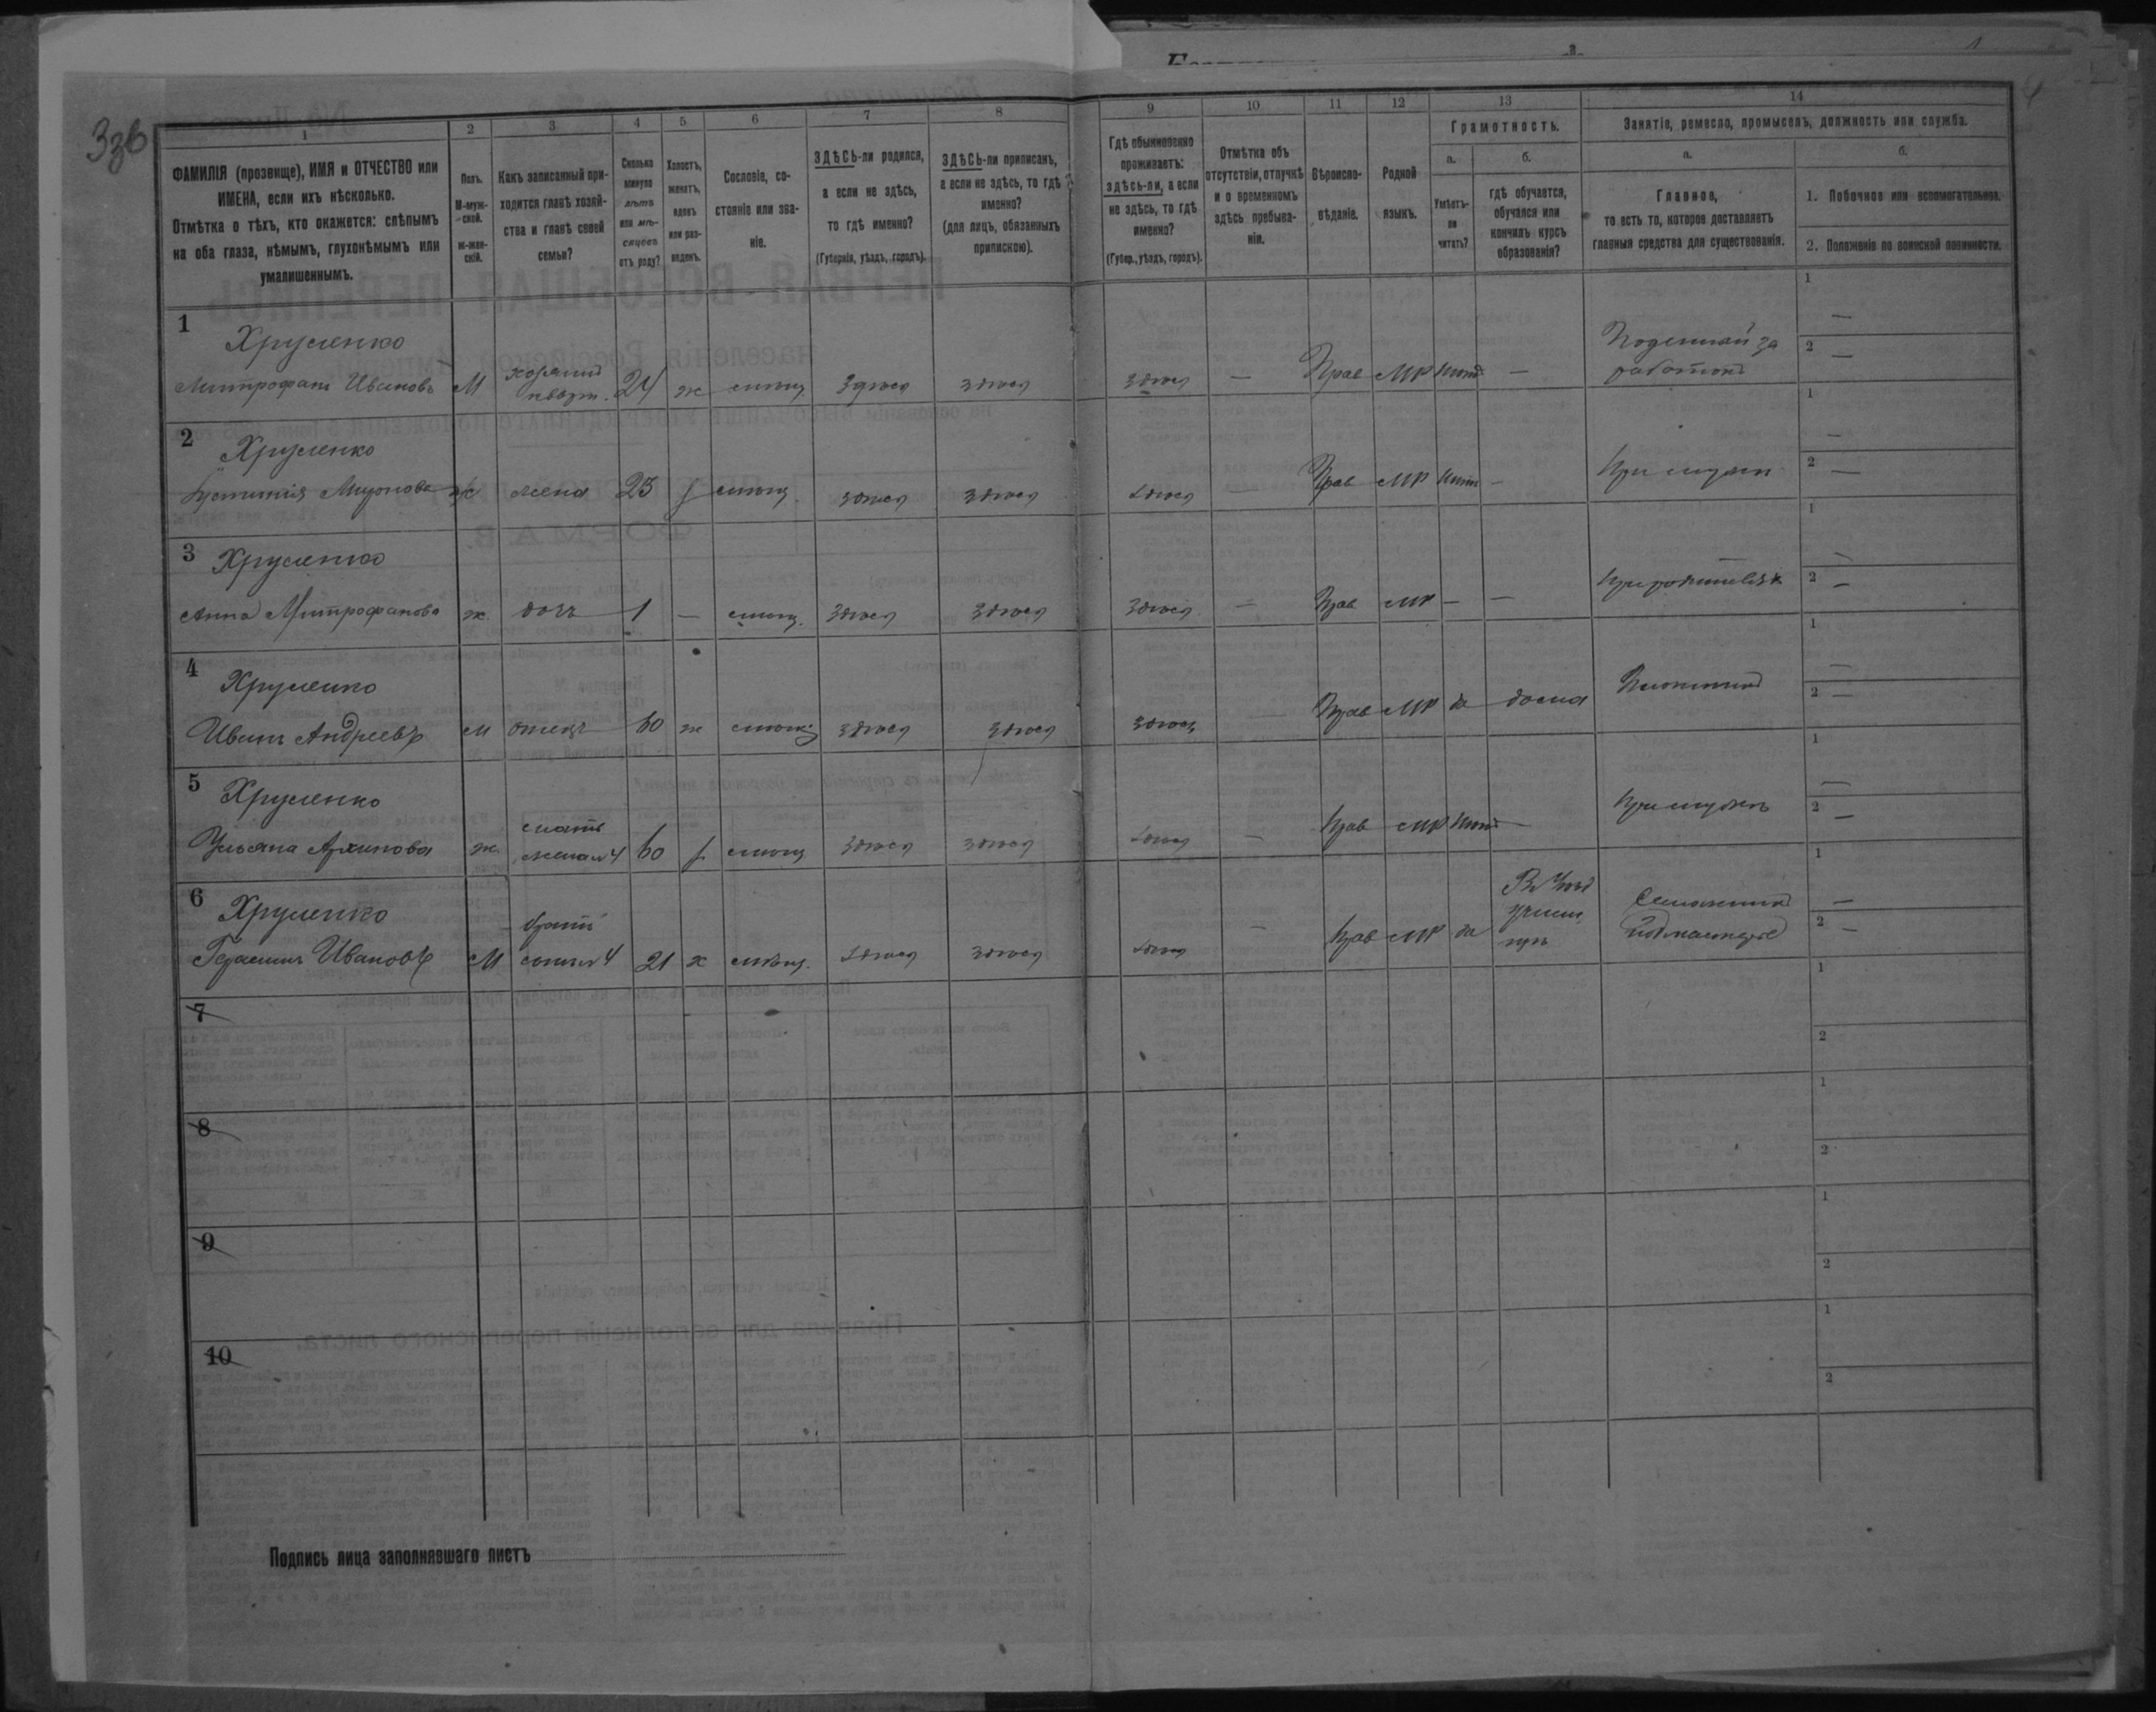 3зв
4
1
2
3
4
5
6
7
8
9
10
11
12
13
14
ФАМИЛІЯ (прозвище), ИМЯ и ОТЧЕСТВО или
ИМЕНА, если ихъ нѣсколько.
Отмѣтка о тѣхъ, кто окажется: слѣпымъ
на оба глаза, нѣмымъ, глухонѣмымъ или
умалишеннымъ.
Полъ.
М-муж-
ской.
ж-жен-
скій.
Какъ записанный при-
ходится главѣ хозяй-
ства и главѣ своей
семьи?
Сколько
минуло
лѣтъ
или мѣ-
сяцевъ
отъ роду?
Холостъ,
женатъ,
вдовъ
или раз-
веденъ.
Сословіе, со-
стояніе или зва-
ніе.
ЗДѢСЬ-ли родился,
а если не здѣсь,
то гдѣ именно?
(Губернія, уѣздъ, городъ).
ЗДѢСЬ-ли приписанъ,
а если не здѣсь, то гдѣ
именно?
(для лицъ, обязанныхъ
припискою).
Гдѣ обыкновенно
проживаетъ:
здѣсь-ли, а если
не здѣсь, то гдѣ
именно?
(Губер., уѣздъ, городъ).
Отмѣтка объ
отсутствіи, отлучкѣ
и о временномъ
здѣсь пребыва-
ніи.
Вѣроиспо-
вѣданіе.
Родной
языкъ.
Грамотность.
а.
Умѣетъ-
ли
читать?
б.
гдѣ обучается,
обучался или
кончилъ курсъ
образованія?
Занятіе, ремесло, промыселъ, должность или служба.
а.
Главное,
то есть то, которое доставляетъ
главныя средства для существованія.
б.
1. Побочное или вспомогательное.
2. Положеніе по воинской повинности.
1
Хруленко
Митрофанъ Ивановъ М хозяинъ кварт. 24 ж мѣщ. здѣсь здѣсь здѣсь — Прав МР нѣтъ — Поденный за работокъ
1 —
2 —
2
Хруленко
Устинія Миронова ж жена 23 з мѣщ. здѣсь здѣсь здѣсь — Прав МР нѣтъ — При мужѣ
1 —
2 —
3 Хруленко
Анна Митрофанова ж дочь 1 — мѣщ. здѣсь здѣсь здѣсь — Прав МР — — При родителяхъ
1 —
2 —
4
Хруленко
Иванъ Андреевъ М отецъ 60 ж мѣщ здѣсь здѣсь здѣсь — Прав МР да дома Плотникъ
1 —
2 —
5
Хруленко
Ульяна Архипова ж. мать жена №4 60 з мѣщ здѣсь здѣсь здѣсь — Прав МР нѣтъ — При мужѣ
1 —
2 —
6
Хруленко
Герасимъ Ивановъ М братъ сынъ №4 21 х мѣщ. здѣсь здѣсь здѣсь — Прав МР да
1 —
2 —
7
1
2
8
1
2
9
1
2
10
1
2
Подпись лица заполнявшаго листъ